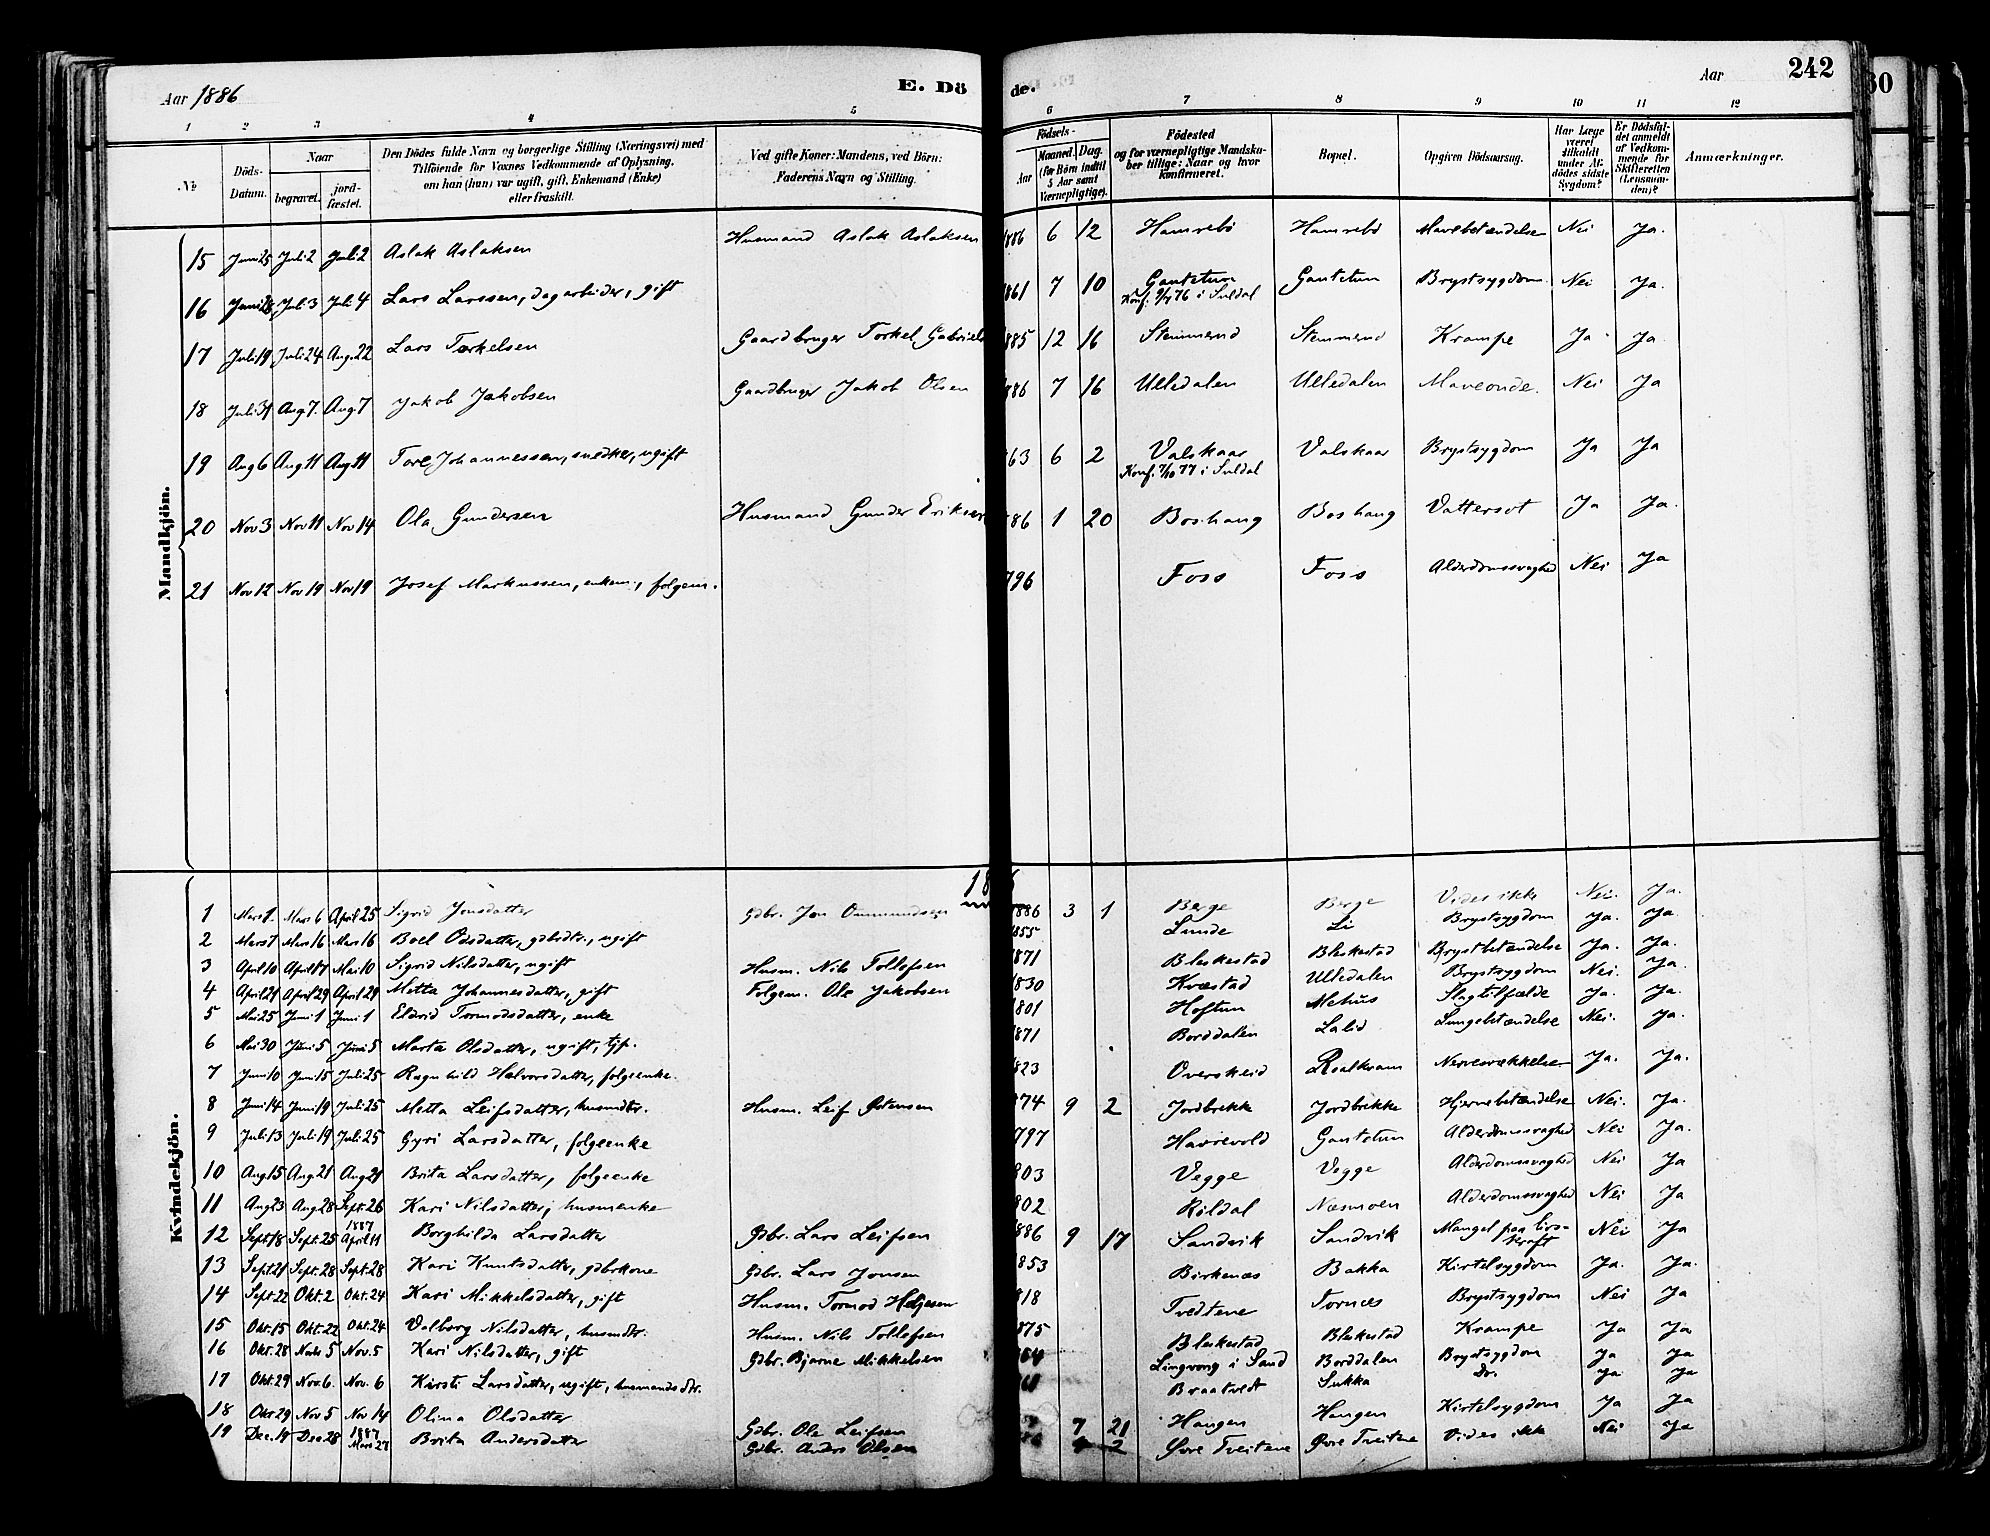 Aar 1886
E. Dö
de.
Aar
242
1 2 3 4 5 6 7 8 9 10 11 12
№
Döds-Datum.
Naar
begravet.
jord-fæstet.
Den Dödes fulde Navn og borgerlige Stilling (Næringsvei) med
Tilföiende for Voxnes Vedkommende af Oplysning,
om han (hun) var ugift, gift, Enkemand (Enke)
eller fraskilt.
Ved gifte Koner: Mandens, ved Börn:
Faderens Navn og Stilling.
Födsels-
Aar
Maaned. Dag.
(for Börn indtil
5 Aar samt
Værnepligtige).
Födested
og for værnepligtige Mandska-
ber tillige: Naar og hvor
konfirmeret.
Bopæl.
Opgiven Dödsaarsag.
Har Læge
været
tilkaldt
under Af-
dödes sidste
Sygdom?
Er Dödsfal-
det anmeldt
af Vedkom-
mende for
Skifteretten
(Lensman-
den)?
Anmærkninger.
Mandkjön.
15 Juni 25 Juli 2 Juli 2 Aslak Aslaksen Husmand Aslak Aslaksen 1886 6 12 Hamrebö Hamrebö Mavebetændelse Nei Ja.
16 Juni 28 Juli 3 Juli 4 Lars Larssen, dagarbeider, gift 861 7 10 Gautetun Gautetun Brystsygdom Nei Ja.
Konf. 9/4 76 i Suldal
17 Juli 19 Juli 24 Aug. 22 Lars Torkelsen Gaardbruger Torkel Gabriels 885 12 16 Stemmend Stemmend Krampe Ja Ja
18 Juli 31 Aug 7. Aug 7 Jakob Jakobsen Gaardbruger Jakob Olsen 886 7 16 Ulledalen Ulledalen Maveonde. Nei Ja
19 Aug 6 Aug 11 Aug 11 Tore Johannessen, snedker, ugift 63 6 2 Valskaar Valskaar Brystsygdom Ja Ja
Konf. 7/10 77 i Suldal
20 Nov 3 Nov 11 Nov 14 Ola Gundersen Husmand Gunder Eriksen 86 1 20 Boshaug Boshaug Vattersot Ja Ja.
21 Nov 12 Nov 19 Nov 19 Josef Markussen, enkem., folgem. 796 Foss Foss Alderdomssvaghed Nei Ja
Kvindekjön.
1 Mars 1. Mars 6 April 25 Sigrid Jonsdatter Gdbr. Jon Ommundsen 1886 3 1 Berge Berge Vides ikke Nei. Ja.
2 Mars 7 Mars 16 Mars 16 Boel Odsdatter, gdbrdtr., ugift 1855 Lunde Li Brystsygdom Ja. Ja.
3 April 10 April 17 Mai 10 Sigrid Nilsdatter, ugift Husm. Nils Tollefsen 1871 Bleskestad Bleskestad Brystbetændelse Ja. Ja.
4 April 21 April 29 April 29 Metta Johannesdatter, gift Folgem. Ole Jakobsen 830 Kvæstad Ulledalen Brystsygdom Nei. Ja.
5 Mai 25 Juni 1 Juni 1 Eldrid Tormodsdatter, enke 801 Hoftun Mehus Slagtilfælde Ja. Ja.
6 Mai 30 Juni 5 Juni 5 Marta Olsdatter, ugift, tjp. 871 Borddalen Lalid Lungebetændelse Nei. Ja.
7 Juni 10 Juni 15 Juli 25 Ragnhild Halvorsdatter, folgeenke. 823 Overskeid Roalkvam Nervesvækkelse Ja. Ja.
8 Juni 14 Juni 19 Juli 25 Metta Leifsdatter, husmdtr. Husm. Leif Østensen 874 9 2 Jordbrekke Jordbrekke Hjernebetændelse Nei. Ja.
9 Juli 13 Juli 19 Juli 25 Gyri Larsdatter, folgeenke 797 Havrevold Gautetun Alderdomssvaghed Nei Ja.
10 Aug 15 Aug 21 Aug 21 Brita Larsdatter, folgeenke 803 Vegge Vegge Alderdomssvaghed Nei Ja
11 Aug 23 Aug 28 Sept. 26 Kari Nilsdatter, husmenke 802 Röldal Næsmoen Alderdomssvaghed Nei Ja
12 Sept. 18 Sept. 25 1887 April 11 Borghilda Larsdatter Gdbr. Lars Leifsen 886 9 17 Sandvik Sandvik Mangel paa livs-kraft Nei Ja
13 Sept 21 Sept. 28 Sept. 28 Kari Knutsdatter, gdbrkone Gdbr. Lars Jonsen 1853 Birkenæs Bakka Kirtelsygdom Ja. Ja.
14 Sept. 22 Okt. 2 Okt. 24 Kari Mikkelsdatter, gift Husm. Tormod Helgesen 818 Tveitene Tornæs Brystsygdom Nei Ja
15 Okt. 15 Okt. 22 Okt. 24 Valborg Nilsdatter, husmdtr. Husm. Nils Tollefsen 875 Bleskestad Bleskestad Krampe Ja Ja
16 Okt. 28 Nov. 5 Nov. 5 Kari Nilsdatter, gift Gdbr. Bjarne Mikkelsen Lingvang i Sand Borddalen Brystsygdom Ja Ja
17 Okt. 29 Nov. 6. Nov. 6 Kirsti Larsdatter, ugift, husmandsdtr. Braatveit Sukka Do. Ja Ja
18 Okt 29 Nov 5 Nov 14 Olina Olsdatter Gdbr. Ole Leifsen 7 21 Haugen Haugen Kirtelsygdom Ja Ja
19 Dec. 19 Dec 28 1887 Mars 27 Brita Andersdatter Gdbr. Anders Olsen 2 Øvre Tveitene Øvre Tveitene Vides ikk Nei Ja